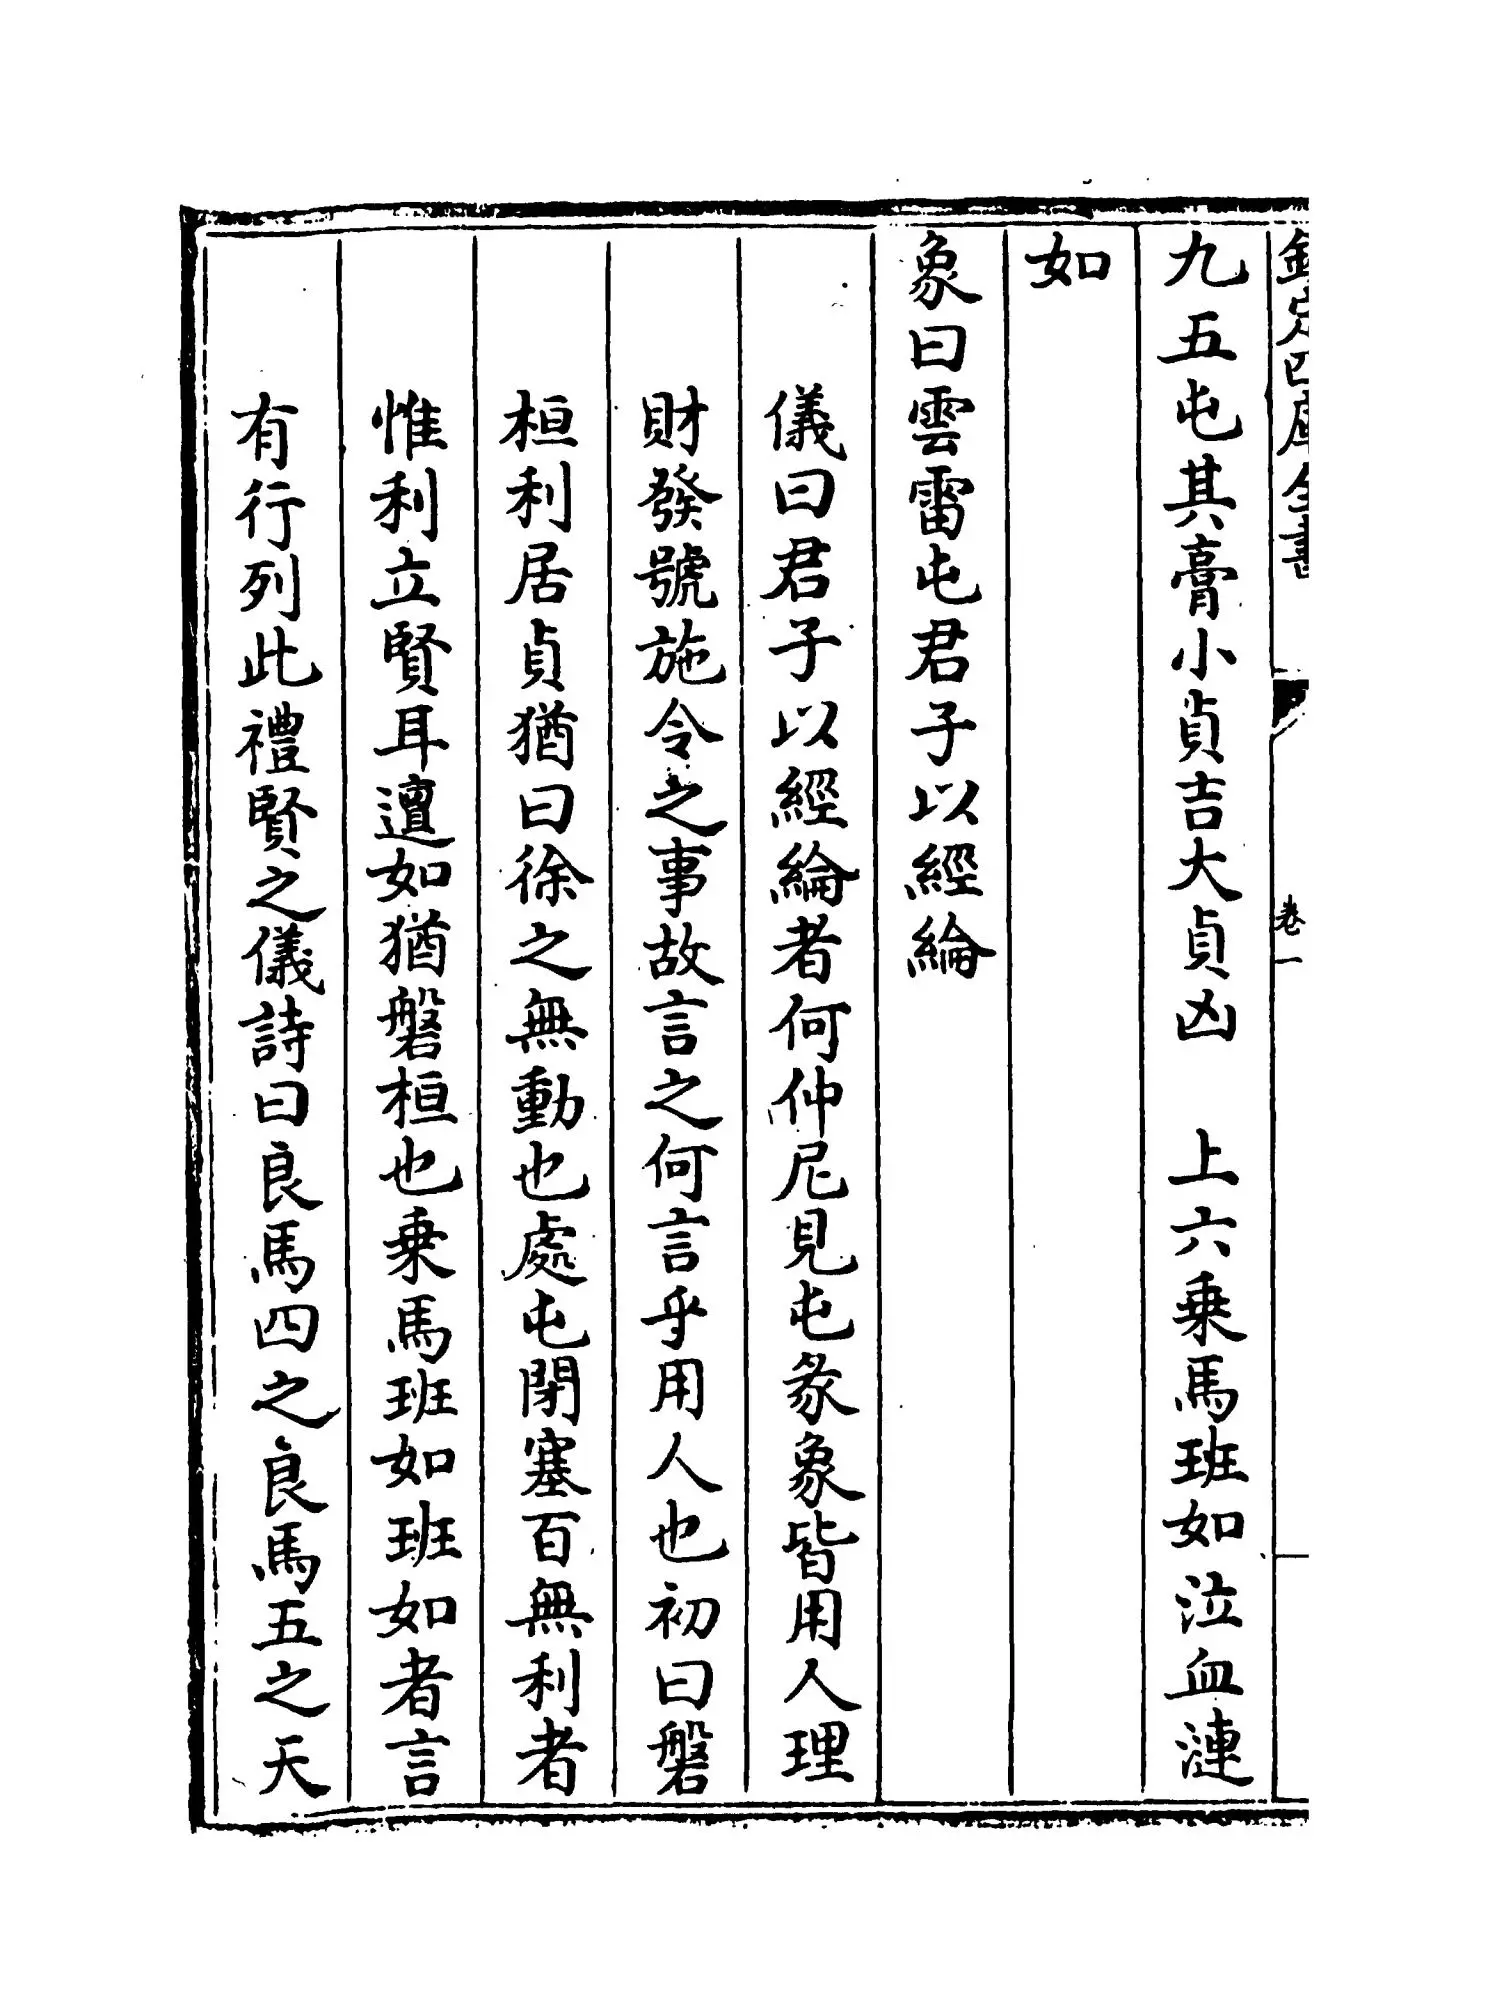 欽定四庫全書 卷一
九五屯其膏小貞吉大貞凶 上六乗馬班如泣血漣
如
象曰雲雷屯君子以經綸
儀曰君子以經綸者何仲尼見屯彖象皆用人理
財發號施令之事故言之何言乎用人也初曰磐
桓利居貞猶曰徐之無動也處屯閉塞百無利者
惟利立賢耳邅如猶磐桓也乗馬班如班如者言
有行列此禮賢之儀詩曰良馬四之良馬五之天